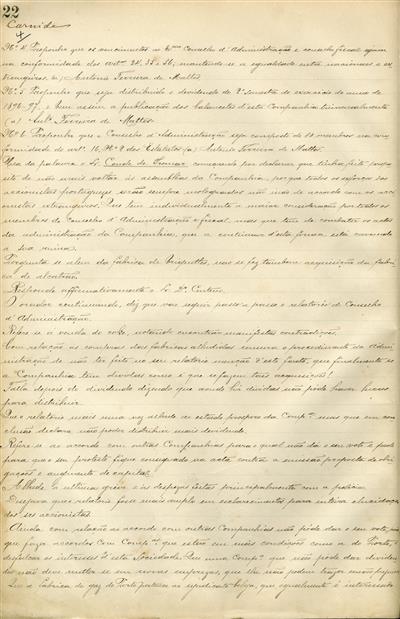 22
Carnide
4
Nº 4 Proponho que os vencimentos do Conselho d'Administração e conselho fiscal sejam
na conformidade dos artos 24, 35 e 36, mantendo-se a egualdade entre nacionaes e ex-
trangeiros. (a) Antonio Ferreira de Mattos
Nº 5 Proponho que seja distribuido o dividendo do 2º semestre do exercicio de
1896-97, e bem assim a publicação dos balancetes d'esta Companhia trimensalmente
(a) Antº Ferreira de Mattos
Nº 6 Proponho que o Conselho d'Administração seja composto de 10 membros na con-
formidade do artº 16, Nº 9 dos Estatutos (a) Antonio Ferreira de Mattos
Usou da palavra o Sr. Conde de começando por declarar que tinha feito propo-
sito de não mais voltar ás assembléas da Companhia, porque todos os esforços dos
accionistas portuguezes serão sempre malogrados não indo de accordo com os acci-
onistas extrangeiros. Que tem individualmente a maior consideração por todos os
membros do Conselho d'Administração e fiscal, mas que tem de combater os actos
da administração da Companhia, que a continuar d'esta fórma está cavando
a sua ruina.
Pergunta se alem da fabrica de não se fez tambem acquisição da fabri-
ca de alcatrão.
Responde affirmativamente o Sr. Dr. Centeno.
O orador continuando, diz que vae seguir passo a passo o relatorio do Conselho
d'Administração.
Refere-se á venda do coke, notando encontrar manifestas contradicções.
Com relação ás compras das fabricas alludidas censura o procedimento da Admi-
nistração de não ter feito no seu relatorio menção d'este facto, que finalmente se
a Companhia tem dividas como é que se fazem taes acquisições!
Falla depois do dividendo dizendo que aonde ha dividas não póde haver lucros
para distribuir.
Que o relatorio mais uma vez allude ao estado prospero da Compª mas que em con-
clusão declara não poder distribuir mais dividendo.
Refere-se ao accordo com outras Companhias para o qual não dá o seu voto e pede
para que o seu protesto fique consignado na acta contra a emissão proposta de obri-
gações e augmento de capital.
Allude á ultima greve e ás despezas feitas principalmente com a policia.
Desejava que o relatorio fosse mais amplo em esclarecimentos para inteira elucidação
dos srs accionistas.
Ainda com relação ao accordo com outras Companhias não póde dar o seu voto, para
que faça accordos com Compªs que estão em más condições como a do Porto, e
desfalcar os interesses d'esta Sociedade. Que uma Compª que não póde dar dividen-
do não deve metter-se em novas emprezas, que lhe não podem trazer senão prejuizos.
Que a fabrica de gaz do Porto pertence ao syndicato belga, que egualmente é interessado